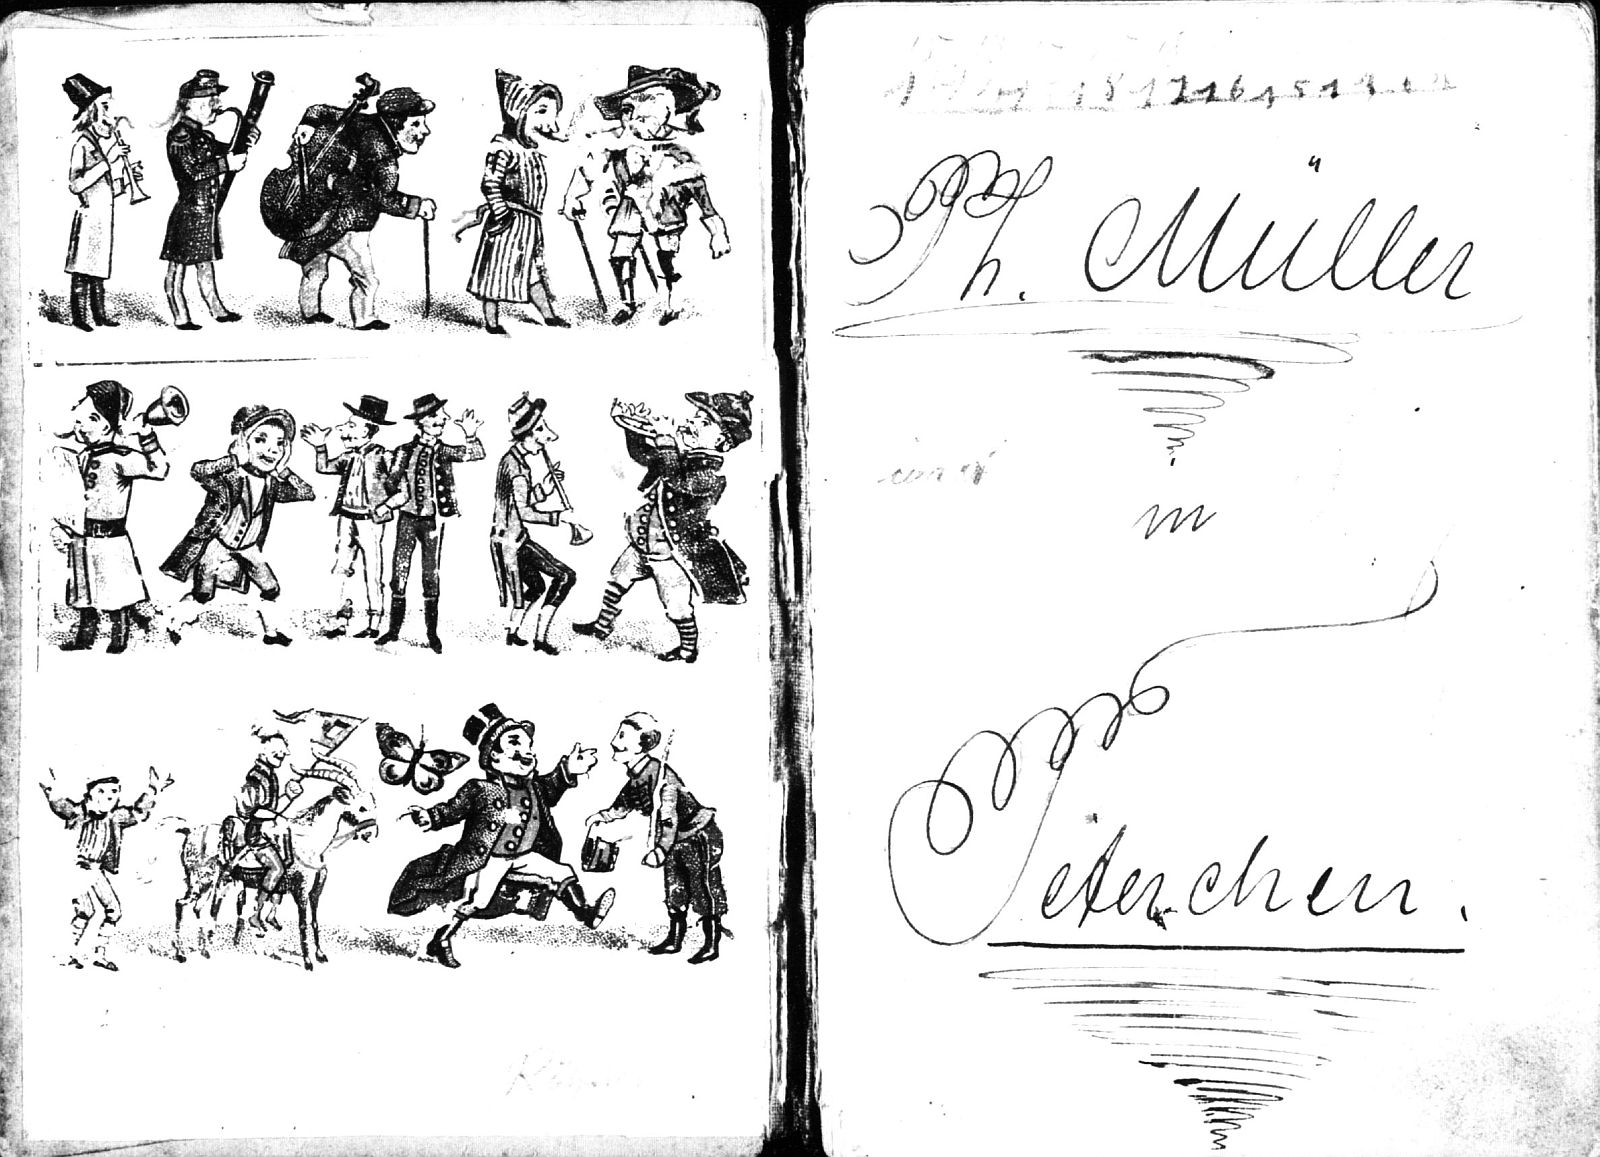 Ph. Müller
in
Peterchen.